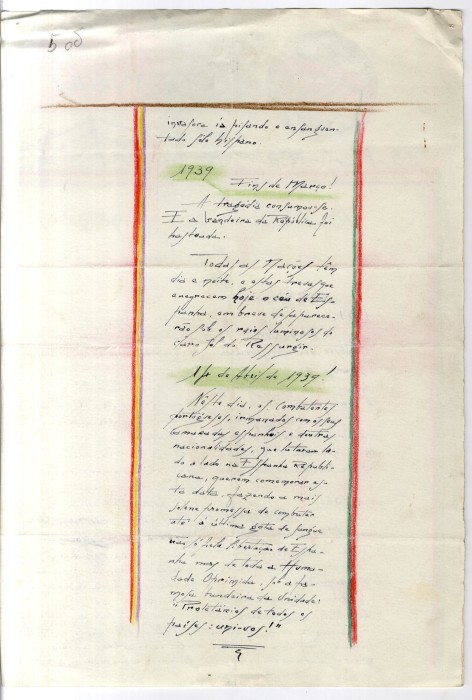 508
invasora ia pisando o ensanguen-
tado solo hispano.
1939
Fins de Março!
A tragédia consumou-se.
E a bandeira da República foi
hasteada.
Todas as Nações têm
dia e noite, e estas trevas que
enegrecem hoje o céu de Es-
panha, em breve desaparece-
rão sob os raios luminosos do
claro sol do Ressurgir.
14 de Abril de 1939!
Neste dia, os combatentes
portugueses, irmanados com os seus
camaradas espanhois e doutras
nacionalidades, que lutaram la-
do a lado na Espanha Republi-
cana, querem comemorar es-
ta data, fazendo a mais
solene promessa de combater
até à última gota de sangue
não só pela libertação de Espa-
nha mas de toda a Huma-
nidade Oprimida, sob a fa-
mosa bandeira da Unidade:
"Proletários de todos os
países: uni-vos!"